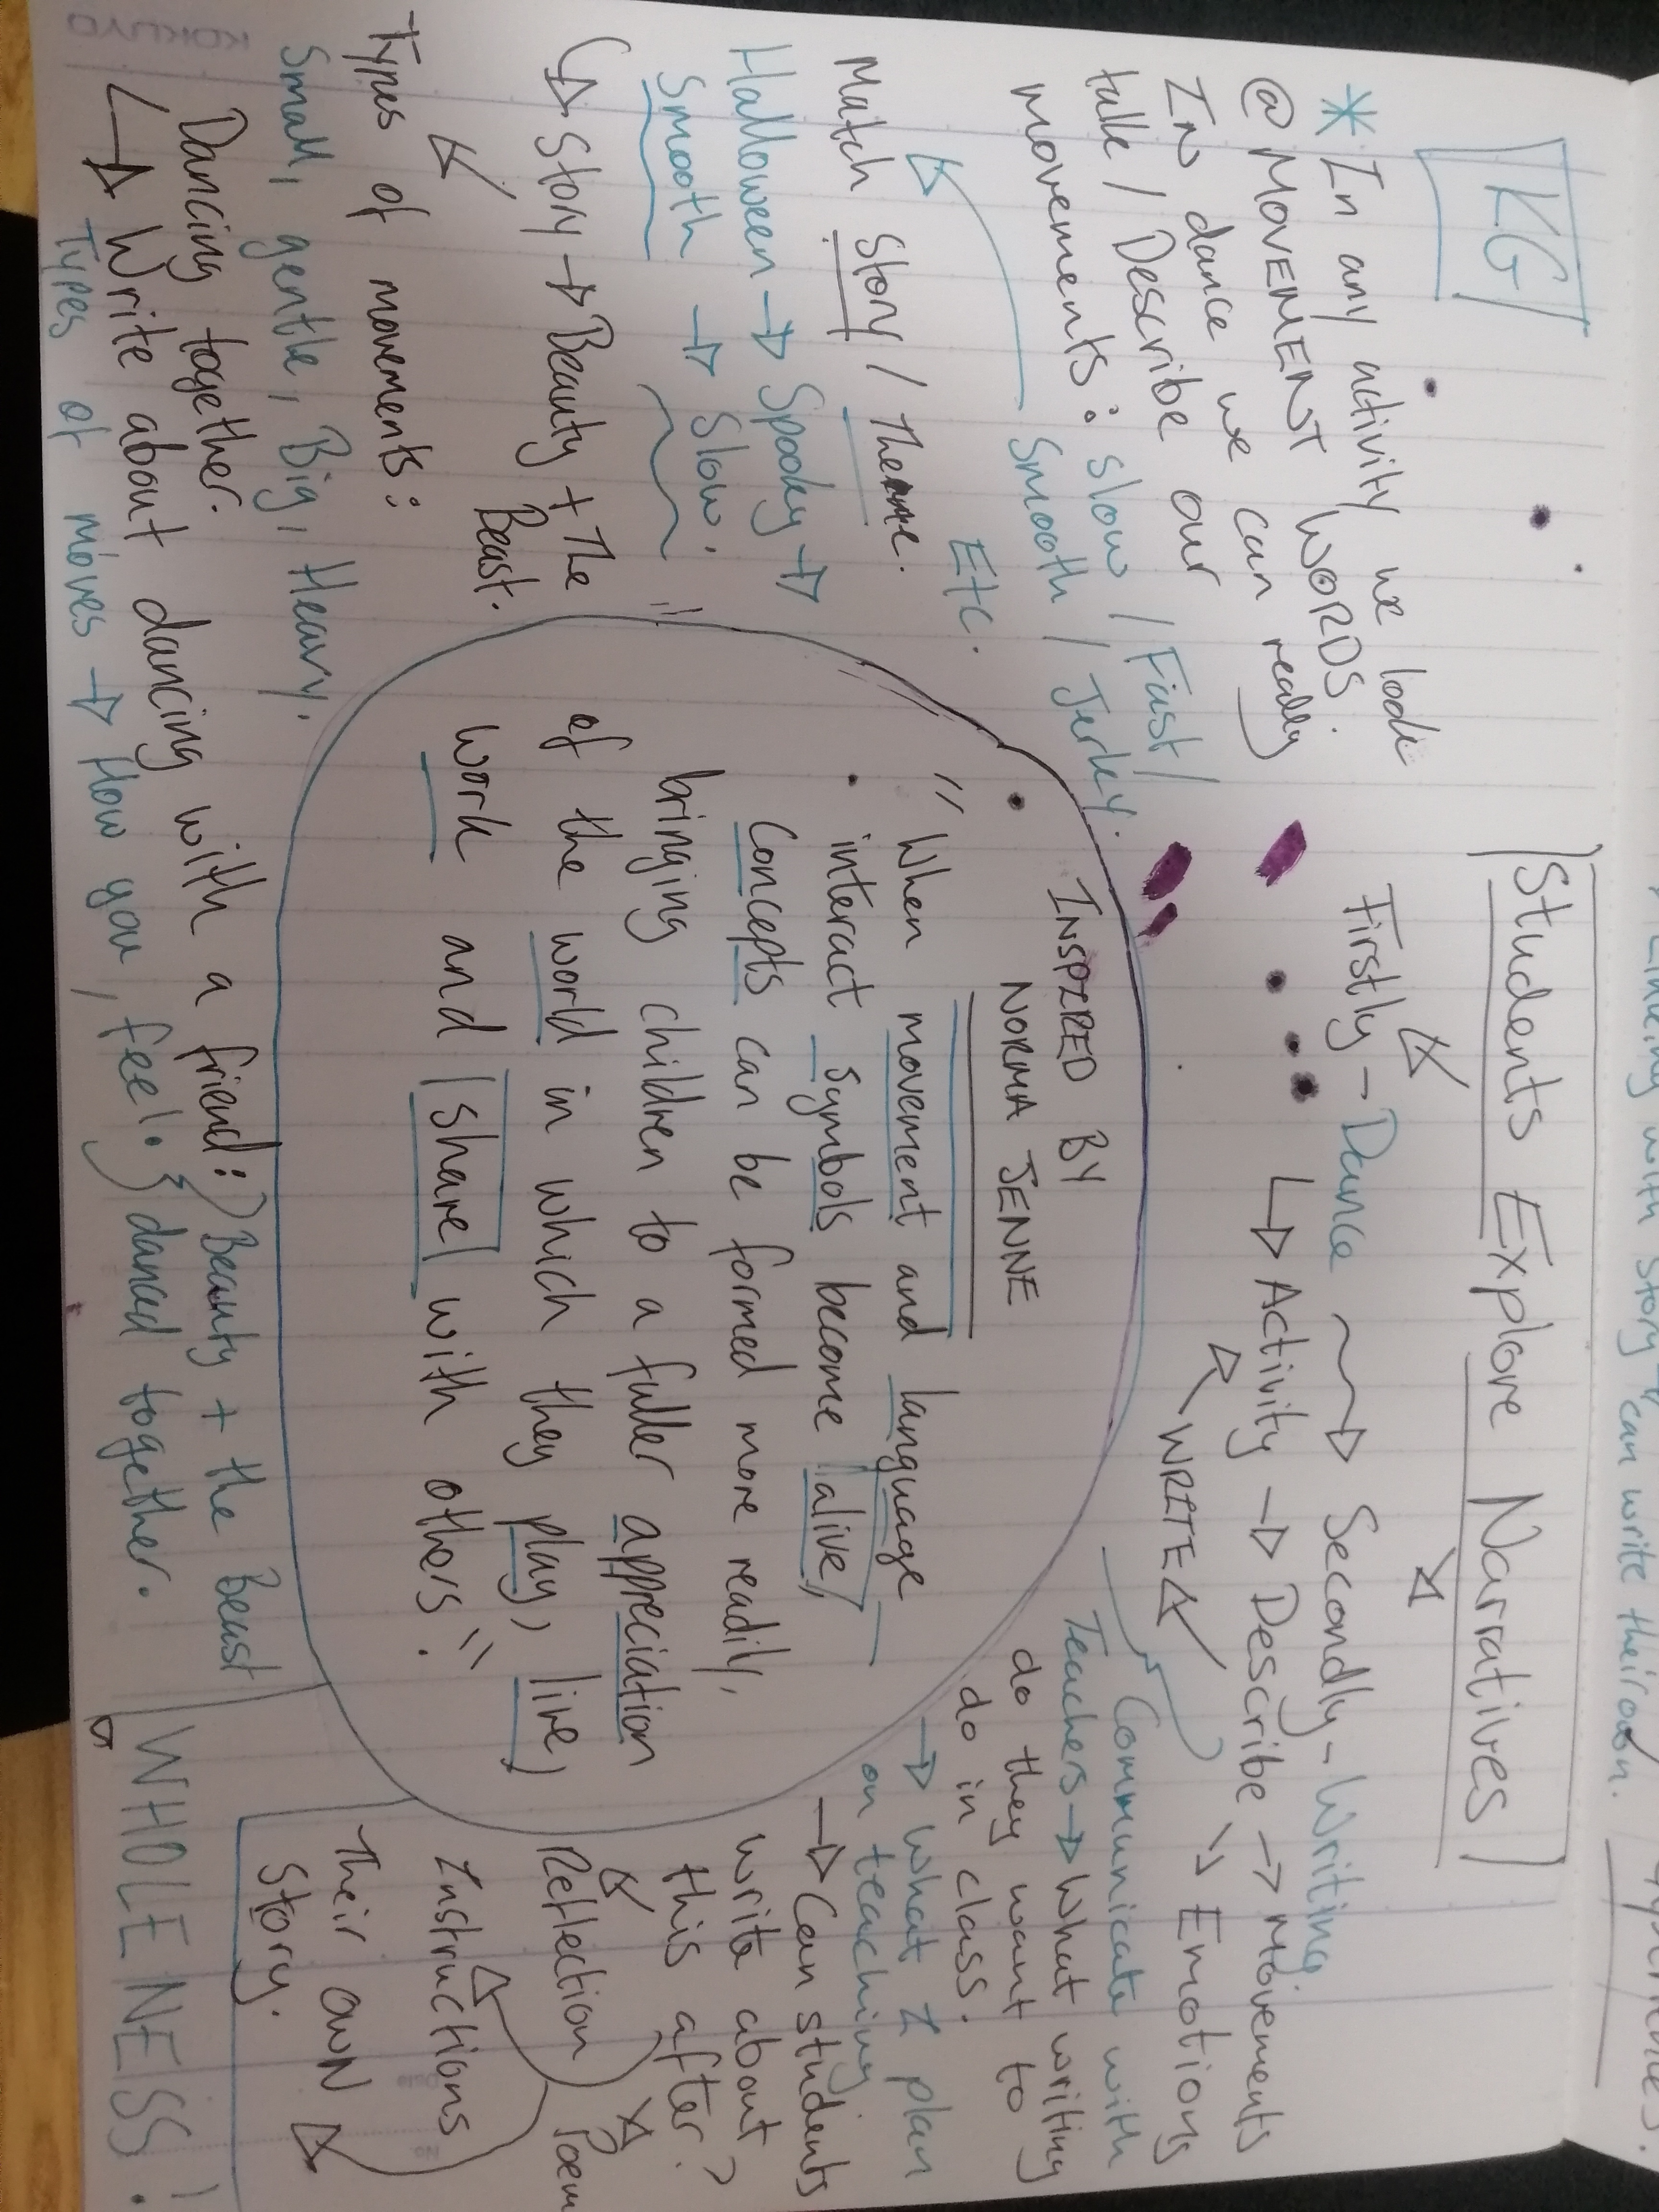 Linking with story & can write their own.
experiences.
KG
Students Explore Narratives
Firstly - Dance → Secondly - Writing
↳ Activity → Describe → Movements
↘ Emotions
WRITE
* In any activity we look
@ MOVEMENT WORDS
In dance we can really
talk / Describe our
movements: slow / Fast /
Smooth / Jerky.
Etc.
Match Story / Theme.
Halloween → Spooky →
Smooth → Slow.
↳ Story → Beauty + The
Beast.
Types of movements:
Small, gentle, Big, Heavy.
Dancing together.
↳ Write about dancing with a friend:
Types of moves → How you feel.
Beauty + the Beast
danced together.
INSPIRED BY
NORMA JENNE
"When movement and language
interact symbols become alive,
Concepts can be formed more readily,
bringing children to a fuller appreciation
of the world in which they play, live,
work and share with others."
Communicate with
Teachers → What writing
do they want to
do in class.
→ What I plan
on teaching
→ Can students
write about
this after?
Reflection Poem
Instructions
Their own
story.
WHOLENESS!
KOKUYO
Date
No